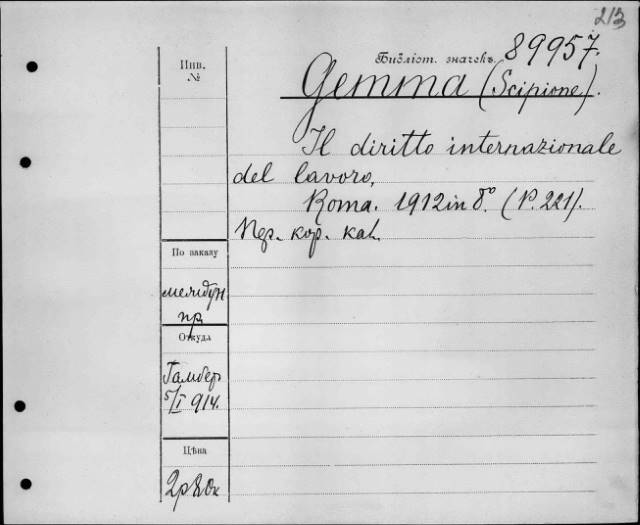 213
Инв.
№
Библіот. значекъ 89957.
Gemma (Scipione).
Il diritto internazionale
del lavoro,
Roma. 1912 in 8.° (P. 221).
кор.
По заказу
междун
пр.
Откуда
Гамбер
5/I 914.
Цѣна